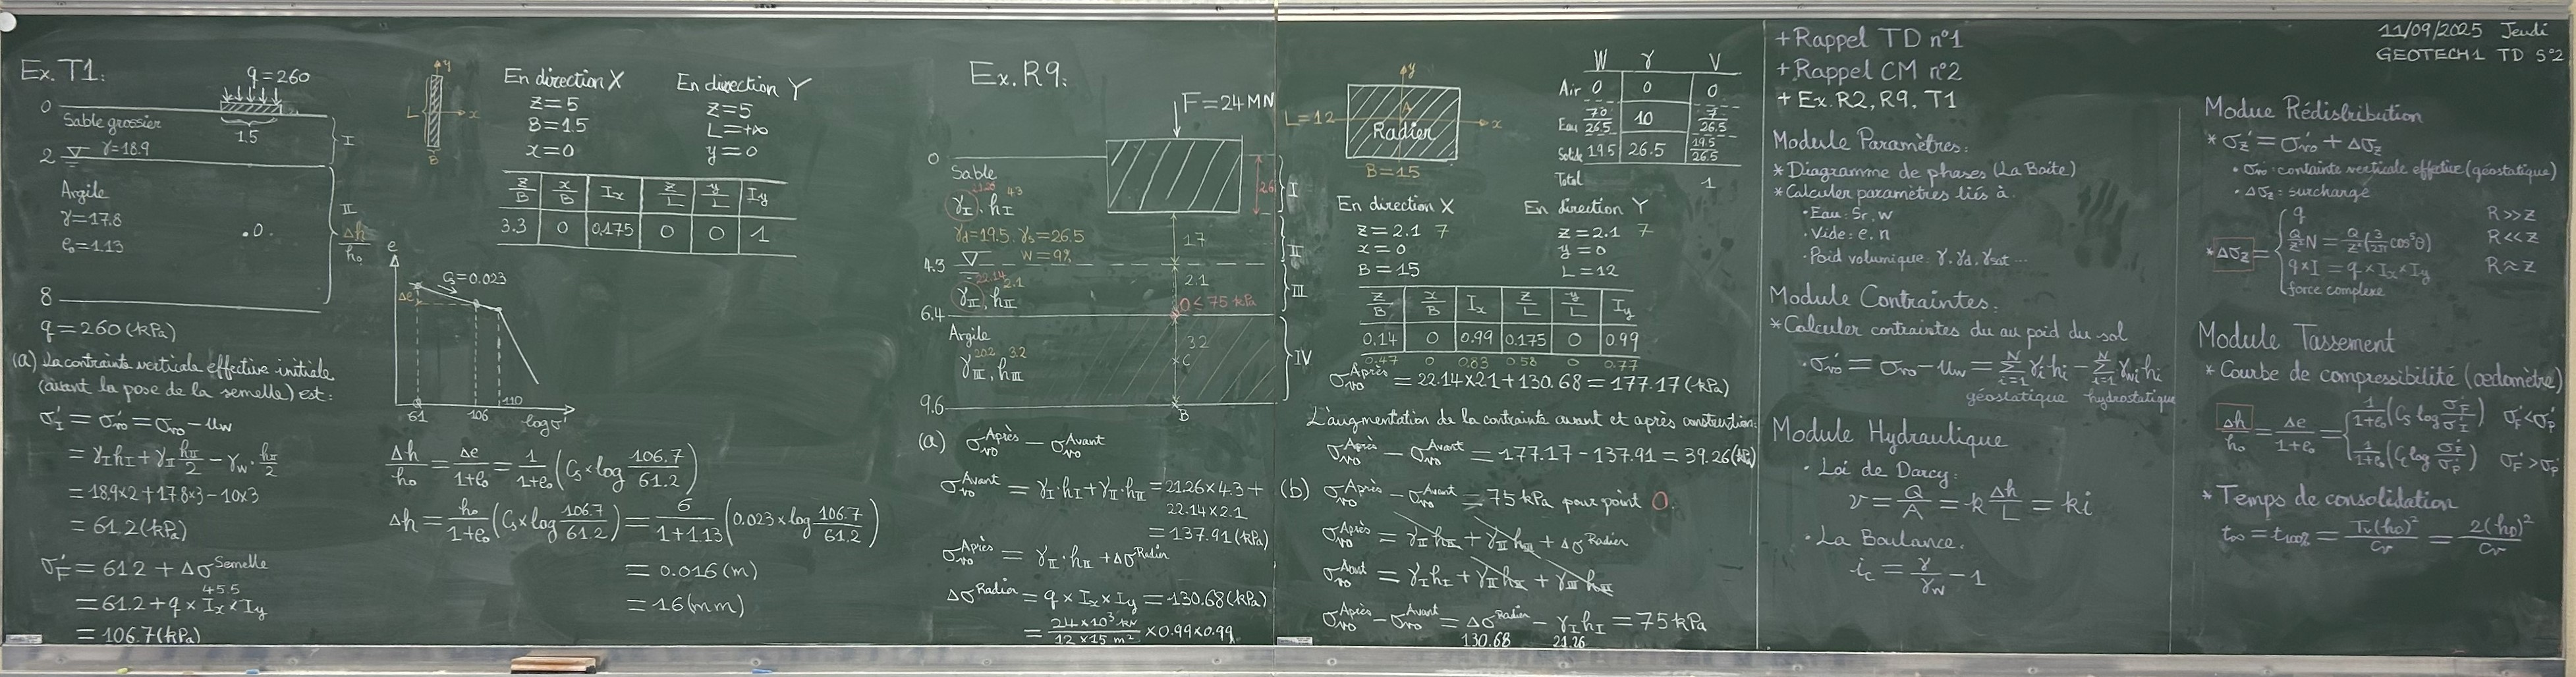 Ex. T1:
q=260
0
Sable grossier
1.5
γ=18.9
I
2
Argile
γ=17.8
e₀=1.13
.0.
II
Δh/h₀
8
q=260 (kPa)
(a) La contrainte verticale effective initiale
(avant la pose de la semelle) est:
σ'I = σ'v0 = σv0 - uw
= γI hI + γII hII/2 - γw · hII/2
= 18.9×2+17.8×3-10×3
= 61.2 (kPa)
σ'F = 61.2 + Δσ Semelle
45.5
= 61.2 + q × Ix × Iy
= 106.7 (kPa)
y
L
x
B
En direction X
z=5
B=1.5
x=0
En direction Y
z=5
L=+∞
y=0
z/B x/B Ix z/L y/L Iy
3.3 0 0.175 0 0 1
e
Cs=0.023
Δe
61 106 110 logσ'
Δh/h₀ = Δe/(1+e₀) = 1/(1+e₀) (Cs × log 106.7/61.2)
Δh = h₀/(1+e₀) (Cs × log 106.7/61.2) = 6/(1+1.13) (0.023 × log 106.7/61.2)
= 0.016 (m)
= 16 (mm)
Ex. R9:
F=24 MN
0
Sable
21.26 4.3
γI, hI
2.6
I
γd=19.5, γs=26.5
W=9%
1.7
II
4.3
22.14 2.1
γII, hII
2.1
III
0≤75 kPa
6.4
Argile
20.2 3.2
γIII, hIII
3.2
C
IV
9.6
B
(a) σv0 Après - σv0 Avant
σv0 Avant = γI·hI + γII·hII = 21.26×4.3 +
22.14×2.1
= 137.91 (kPa)
σv0 Après = γII·hII + Δσ Radier
Δσ Radier = q × Ix × Iy = 130.68 (kPa)
= 24×10³ kN/12×15 m² × 0.99×0.99
y
L=12
A
Radier
x
B=15
W γ V
Air 0 0 0
Eau 70/26.5 10 7/26.5
Solide 19.5 26.5 19.5/26.5
Total 1
En direction X
z=2.1 7
x=0
B=15
En direction Y
z=2.1 7
y=0
L=12
z/B x/B Ix z/L y/L Iy
0.14 0 0.99 0.175 0 0.99
0.47 0 0.83 0.58 0 0.77
σv0 Après = 22.14×2.1+130.68 = 177.17 (kPa)
L'augmentation de la contrainte avant et après construction:
σv0 Après - σv0 Avant = 177.17-137.91 = 39.26 (kPa)
(b) σv0 Après - σv0 Avant = 75 kPa pour point 0.
σv0 Après = γII hII + γIII hIII + Δσ Radier
σv0 Avant = γI hI + γII hII + γIII hIII
σv0 Après - σv0 Avant = Δσ Radier - γI hI = 75 kPa
130.68 21.26
+Rappel TD n°1
+Rappel CM n°2
+ Ex. R2, R9, T1
Module Paramètres:
* Diagramme de phases (La Boite)
* Calculer paramètres liés à.
· Eau: Sr, w
· Vide: e, n
· Poid volumique: γ, γd, γsat...
Module Contraintes:
* Calculer contraintes du au poid du sol
· σ'v0 = σv0 - uw = Σ(i=1→N) γi hi - Σ(i=1→N) γwi hi
géostatique hydrostatique
Module Hydraulique
· Loi de Darcy:
v = Q/A = k Δh/L = ki
· La Boulance.
ic = γ/γw - 1
11/09/2025 Jeudi
GEOTECH1 TD S°2
Modue Rédistribution
* σ'z = σ'v0 + Δσz
· σ'v0: containte verticale effective (géostatique)
· Δσz: surcharge
* Δσz =
q R>>z
Q/z² N = Q/z² (3/2π cos⁵θ) R<<z
q×I = q × Ix × Iy R≈z
force complexe
Module Tassement
* Courbe de compressibilité (œdomètre)
Δh/h₀ = Δe/(1+e₀) =
1/(1+e₀) (Cs log σ'F/σ'I) σ'F<σ'P
1/(1+e₀) (Cc log σ'F/σ'P) σ'F>σ'P
* Temps de consolidation
t∞ = t100% = Tv(hD)²/Cv = 2(hD)²/Cv